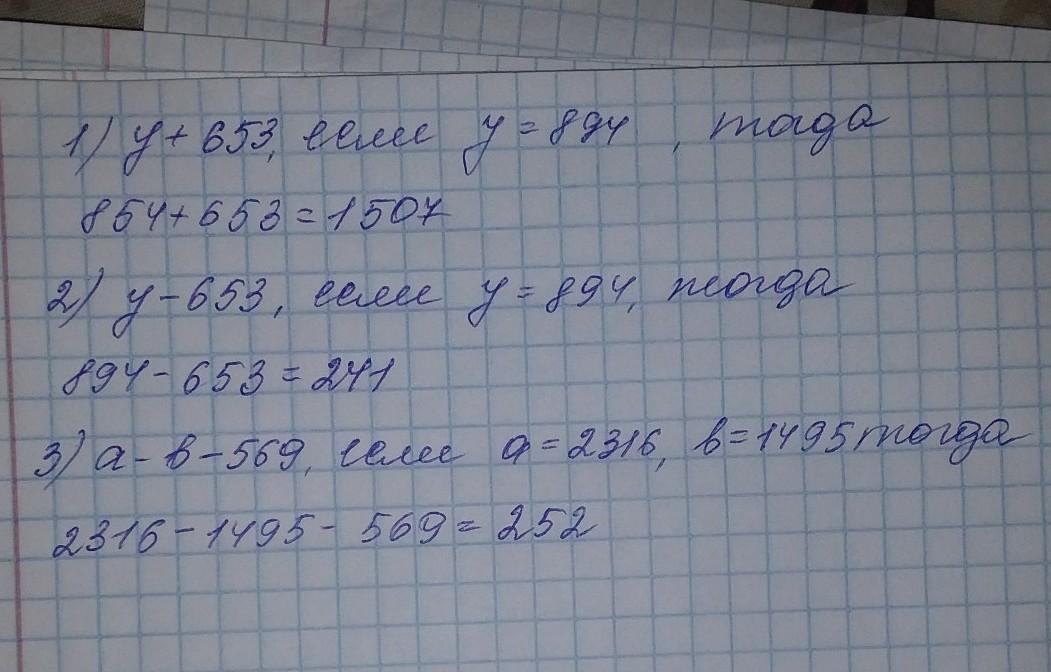 1) y + 653, если y = 894 , тогда
854 + 653 = 1507
2) y - 653, если y = 894, тогда
894 - 653 = 241
3) a - b - 569, если a = 2316, b = 1495 тогда
2316 - 1495 - 569 = 252